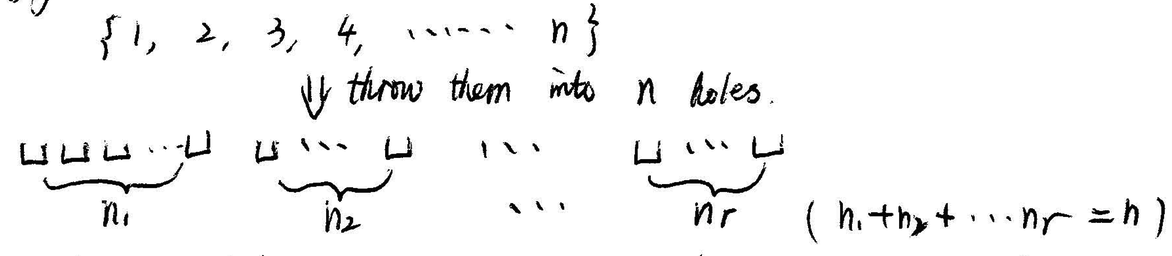 {1, 2, 3, 4, ...... n}
⇓ throw them into n holes.
⊔ ⊔ ⊔ ... ⊔ ⊔ ... ⊔ ... ⊔ ... ⊔
n₁ n₂ ... nr (n₁+n₂+...nr=n)